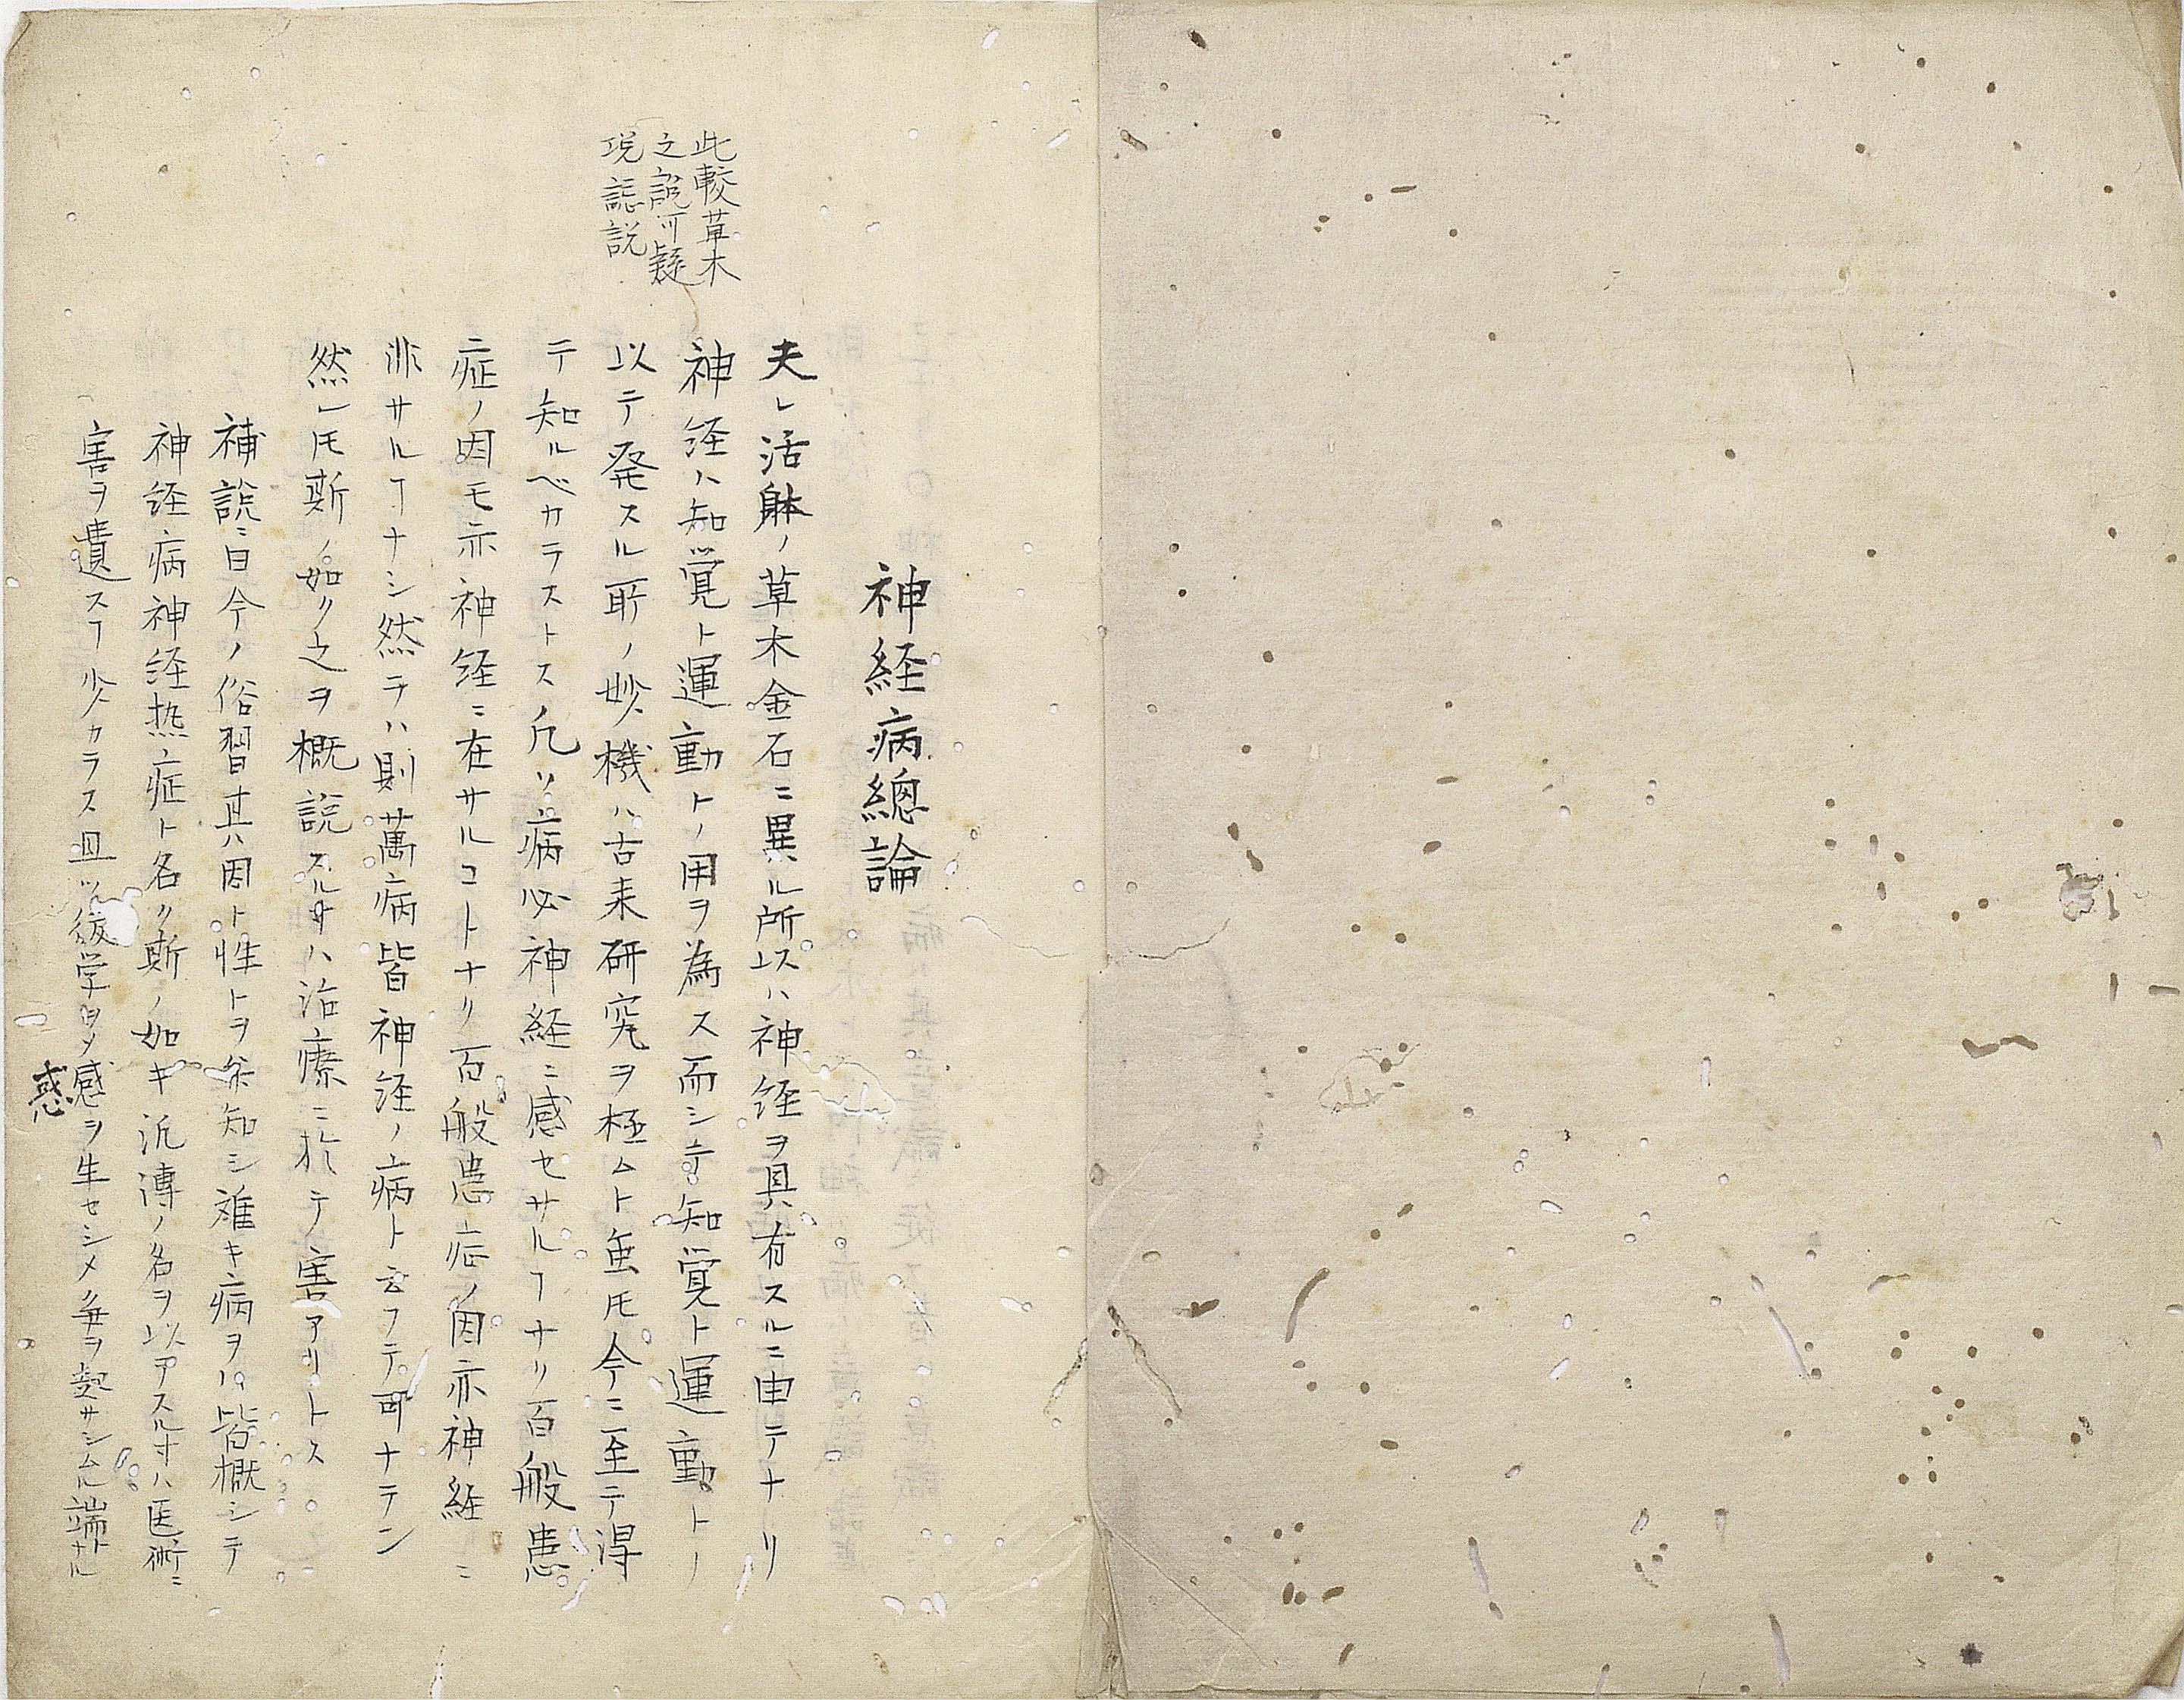 神経病總論
此較草木
之說可疑
恐誌説
夫レ活躰ノ草木金石ニ異ル所以ハ神経ヲ具有スルニ由テナリ
神経ハ知覚ト運動トノ用ヲ為ス而シテ知覚ト運動トノ
以テ発スル所ノ妙機ハ古来研究ヲ極ムト虽𪜈今ニ至テ得
テ知ルベカラストス凡ソ病必神経ニ感セサルヿナリ百般患
症ノ因モ亦神経ニ在サルコトナリ百般患症ノ因亦神経ニ
非サルヿナシ然テハ則萬病皆神経ノ病ト云フテ可ナラン
然レ𪜈斯ノ如ク之ヲ概說スルヰハ治療ニ於テ害アリトス
補說ニ曰今ノ俗習其因ト性トヲ知シ難キ病ヲハ皆概シテ
神経病神経热症ト名ク斯ノ如キ汎漙ノ名ヲ以テスル寸ハ医術ニ
害ヲ遺スヿ少カラス且ツ後学ヲメ感ヲ生セシメ毎ヲ起サシムル端トナル
惑